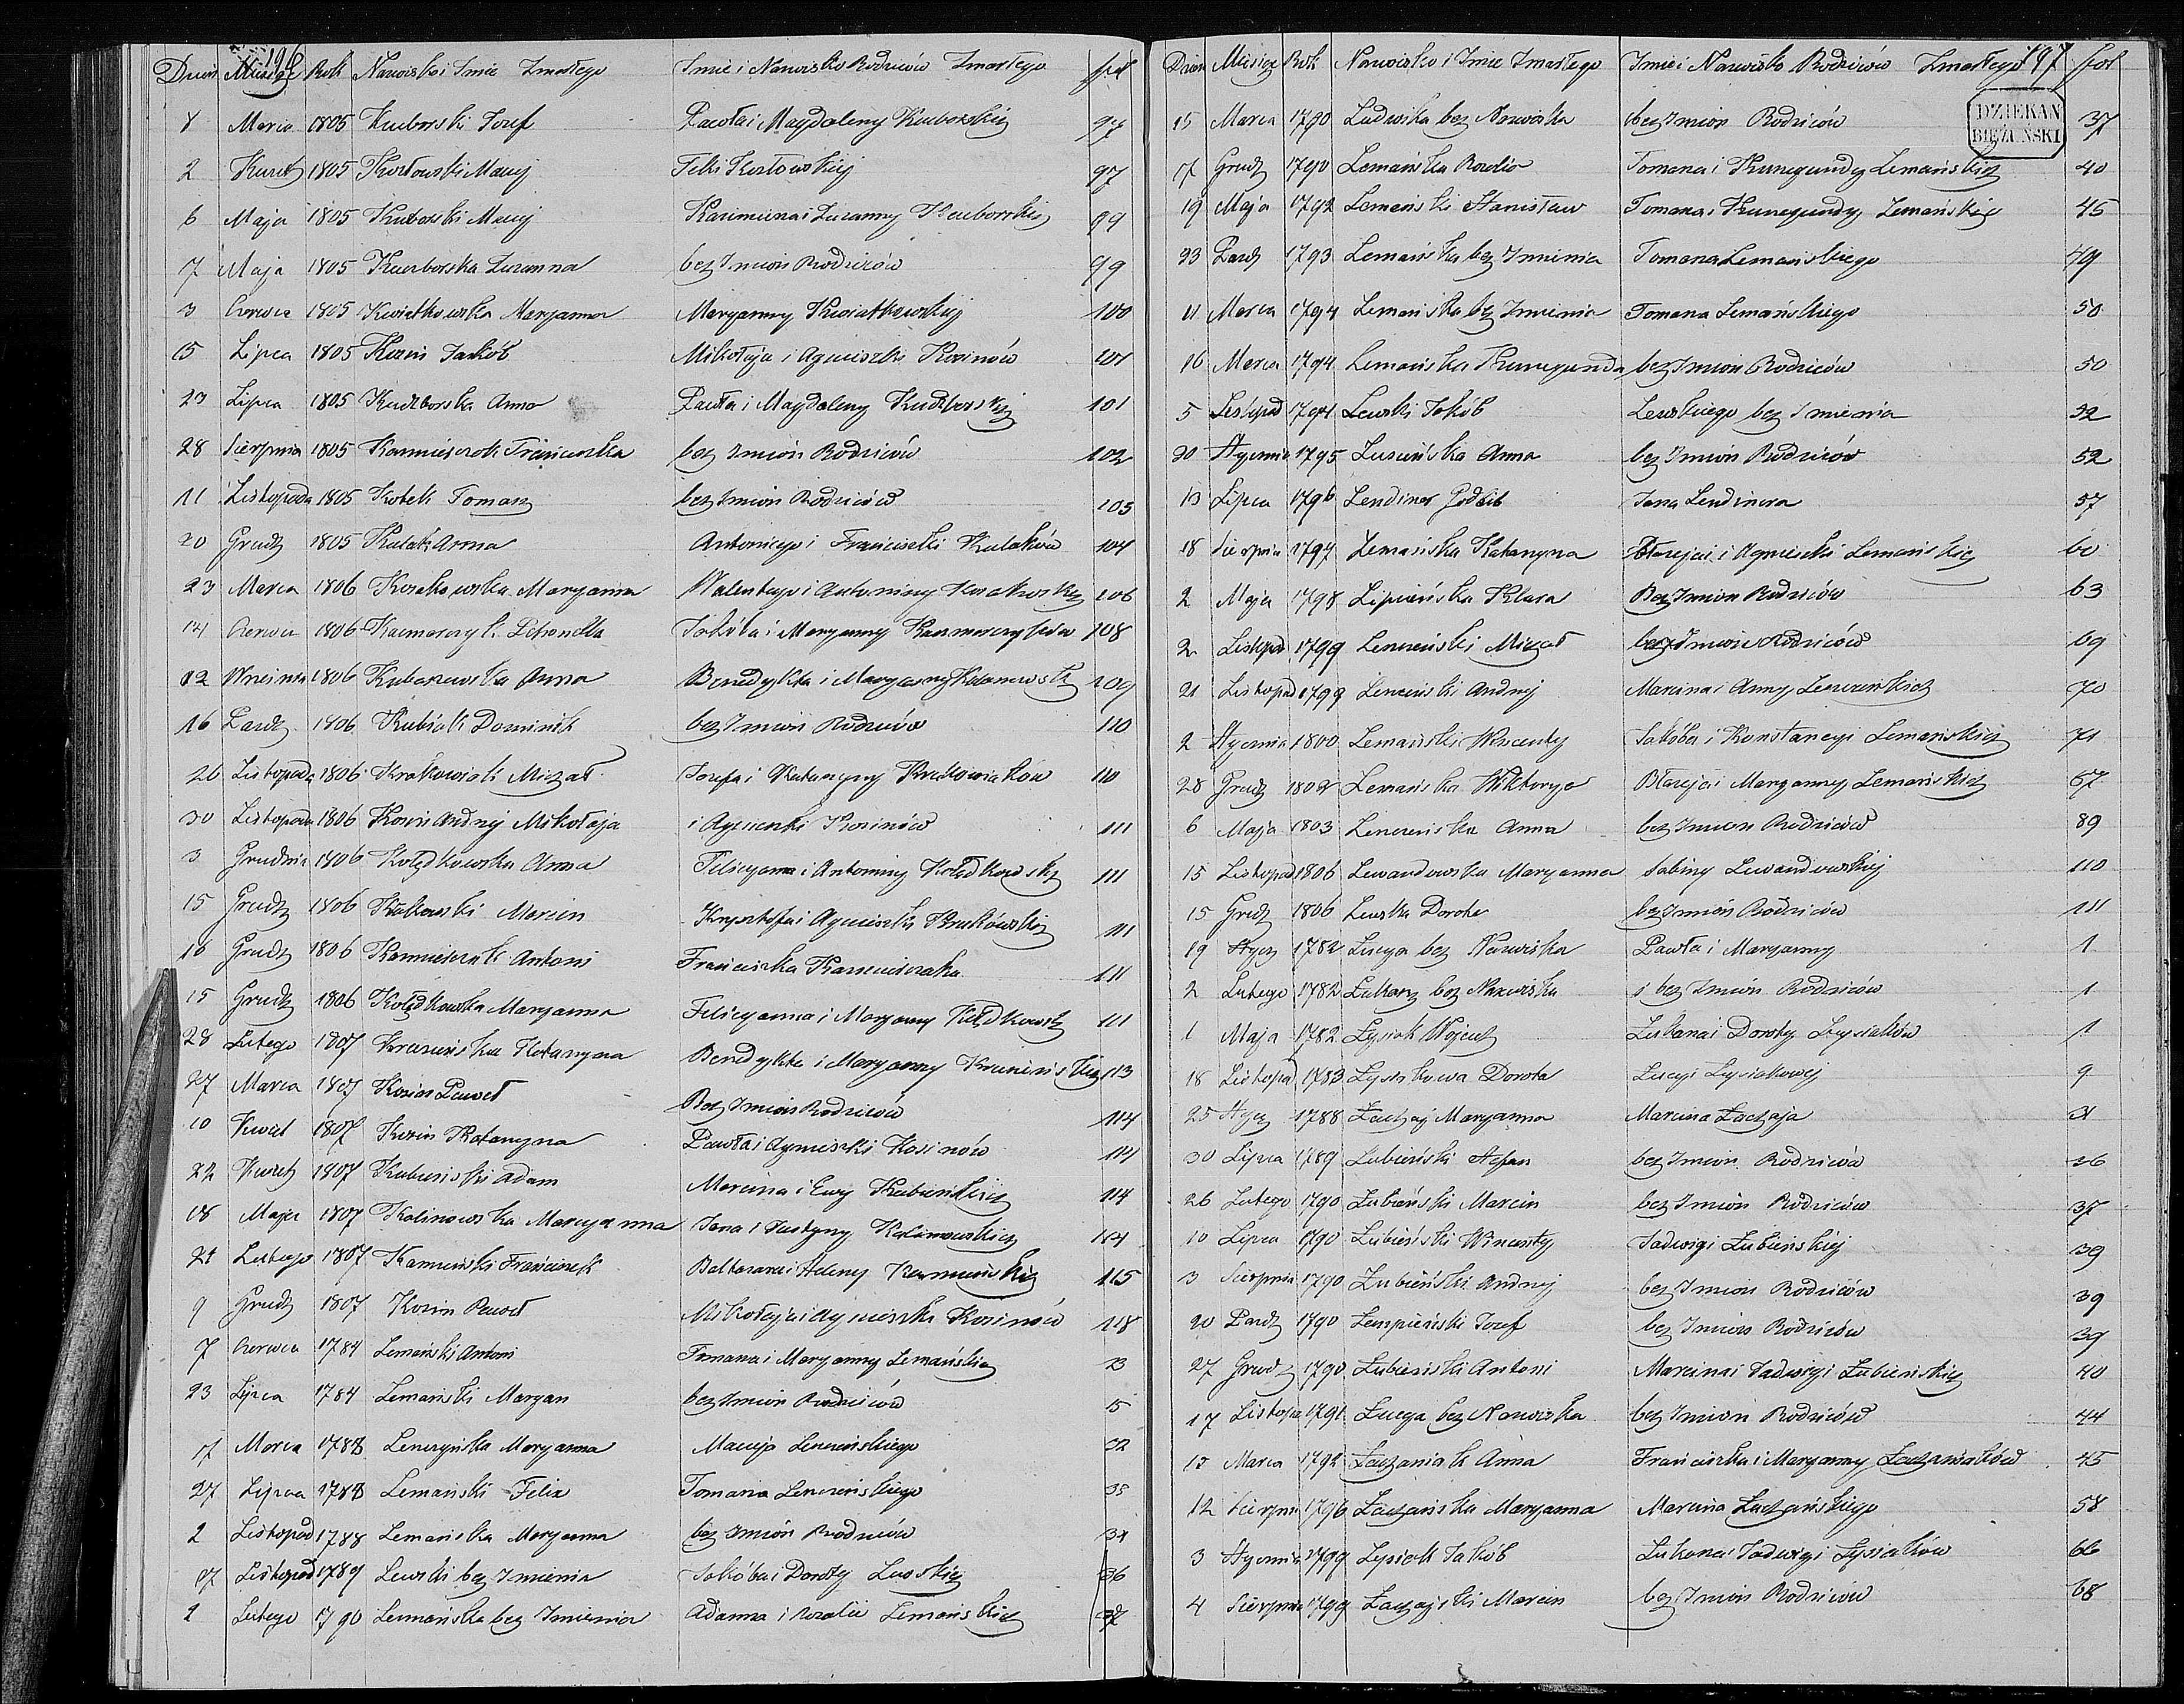 196
Dzień Miesiąc Rok Nazwisko i Imie Zmarłego Imie i Nazwisko Rodziców Zmarłego fol
8 Marca 1805 Kuborski Jozef Pawła i Magdaleny Kuborskich 97
2 Kwiet 1805 Kozłowski Maciej Felixi Kozłowskiej 97
6 Maja 1805 Kuborski Maciej Kazimierza i Zuzanny Kuborskich 99
7 Maja 1805 Kuczborska Zuzanna bez Imion Rodziców 99
3 Czerwca 1805 Kwiatkowska Maryanna Maryanny Kwiatkowskiej 100
15 Lipca 1805 Kozin Jakób Mikołaja i Agnieszki Kozinów 101
23 Lipca 1805 Kuczborska Anna Pawła i Magdaleny Kuczborskich 101
28 Sierpnia 1805 Kamieniczak Franciszka bez Imion Rodziców 102
11 Listopada 1805 Kotek Tomasz bez Imion Rodziców 103
20 Grudz 1805 Kulak Anna Antoniego i Franciszki Kulaków 104
23 Marca 1806 Kozakowska Maryanna Walentego i Antoniny Kozakowskich 106
14 Czerwca 1806 Kaczmarczyk Petronella Jakóba i Maryanny Kaczmarczyków 108
12 Wrzesnia 1806 Kubanowska Anna Benedykta i Maryanny 109
16 Pazdz 1806 Kubiak Dominik bez Imion Rodziców 110
26 Listopada 1806 Krakowiak Michał Jozefa i Katarzyny Krakowiaków 110
30 Listopada 1806 Kozin Andrzej Mikołaja i Agnieszki Kozinów 111
3 Grudnia 1806 Kołędkowska Anna Felicyana i Antoniny Kołędkowskich 111
15 Grudz 1806 Krukowski Marcin Krysztofa i Agnieszki Krukówskich 111
16 Grudz 1806 Kamieniczak Antoni Franciszka Kamieniczaka 111
15 Grudz 1806 Kołędkowska Maryanna Felicyanna i Maryanny Kołędkowskich 111
28 Lutego 1807 Krzesińska Katarzyna Benedykta i Maryanny 113
27 Marca 1807 Kozin Paweł Bez Imion Rodziców 114
10 Kwiet 1807 Kozin Katarzyna Pawła i Agnieszki Kozinów 114
22 Kwiet 1807 Kubieniski Adam Marcina i Ewy 114
18 Maja 1807 Kalinowska Maryanna Jana i Justyny Kalinowskich 114
21 Lutego 1807 Kamieński Franciszek Baltazara i Heleny Kamieńskich 115
9 Grudz 1807 Kozin Paweł Mikołaja i Agnieszki Kozinów 118
7 Czerwca 1784 Lemański Antoni Tomana i Maryanny Lemańskich 13
23 Lipca 1784 Lemański Maryan bez Imion Rodziców 15
17 Marca 1788 Lenczyńska Maryanna Macieja Lenczeńskiego 32
27 Lipca 1788 Lemański Felix Tomana Lenczeńskiego 33
2 Listopad 1788 Lemańska Maryanna bez Imión Rodziców 34
17 Listopad 1789 Lewski bez Imienia Jakóba i Doroty Lewskich 36
2 Lutego 1790 Lemańska bez Imienia Adama i Rozalii Lemańskich 37
197
Dzień Miesiąc Rok Nazwisko i Imie Zmarłego Imie i Nazwisko Rodziców Zmarłego fol
DZIEKAN
BIEŻUŃSKI
15 Marca 1790 Ludwika bez Nazwiska bez Imion Rodziców 37
17 Grudz 1790 Lemańska Rozalia Tomana i Kunegundy Lemańskich 40
19 Maja 1792 Lemański Stanisław Tomana i Kunegundy Lemańskich 45
23 Pazdz 1793 Lemańska bez Imienia Tomana Lemańskiego 49
11 Marca 1794 Lemańska bez Imienia Tomana Lemańskiego 50
16 Marca 1794 Lemańska Kunegunda bez Imion Rodziców 50
5 Listopad 1794 Lewski Jakób Lewskiego bez Imienia 52
30 Stycznia 1795 Anna bez Imion Rodziców 52
13 Lipca 1796 Lendiner Godlib Jana Lendinera 57
18 Sierpnia 1797 Lemańska Katarzyna Błażeja i Agnieszki Lemańskich 60
2 Maja 1798 Lipieńska Klara Bez Imion Rodziców 63
2 Listopad 1799 Lenczeński Michał bez Imion Rodziców 69
21 Listopad 1799 Lenczeński Andrzej Marcina i Anny Lenczeńskich 70
2 Stycznia 1800 Lemański Wincenty Jakóba i Konstancyi Lemańskich 71
28 Grudz 1802 Lemańska Wiktorya Błażeja i Maryanny Lemańskich 87
6 Maja 1803 Lenczeńska Anna bez Imion Rodziców 89
15 Listopad 1806 Lewandowska Maryanna Sabiny Lewandowskiej 110
15 Grudz 1806 Lewska Dorota bez Imión Rodziców 111
19 Stycz 1782 Łucya bez Nazwiska Pawła i Maryanny 1
2 Lutego 1782 Łukasz bez Nazwiska i bez Imion Rodziców 1
1 Maja 1782 Łysiak Wojciech Łukasza i Doroty Łysiaków 1
18 Listopad 1783 Łysiakowa Dorota Łucyi Łysiakowej 9
25 Stycz 1788 Łachaj Maryanna Marcina Łachaja 31
30 Lipca 1789 Łubieński Stefan bez Imion Rodziców 36
26 Lutego 1790 Łubieński Marcin bez Imion Rodziców 37
10 Lipca 1790 Łubieński Wincenty Jadwigi Łubieńskiej 39
3 Sierpnia 1790 Łubieński Andrzej bez Imion Rodziców 39
20 Pazdz 1790 Jozef bez Imion Rodziców 39
27 Grudz 1790 Łubieński Antoni Marcina i Jadwigi Łubieńskich 40
17 Listopa 1791 Łucya bez Nazwiska bez Imion Rodziców 44
13 Marca 1792 Łachaniak Anna Franciszka i Maryanny Łachaniaków 45
12 Sierpni 1796 Łachańska Maryanna Marcina Łachańskiego 58
3 Stycznia 1799 Łysiak Jakób Łukasza i Jadwigi Łysiaków 66
4 Sierpnia 1799 Łachajski Marcin bez Imion Rodziców 68